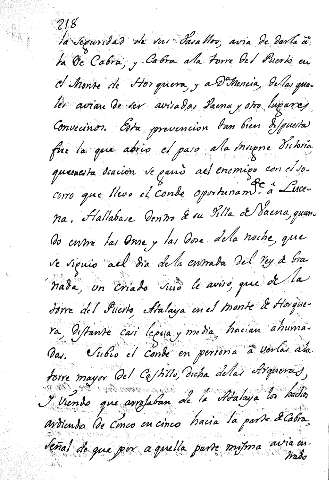 218
la seguridad de sus Vasallos, avia de darla à
ta De Cabra, y Cabra a la torre del Puerto en
el Monte de Horquera, y a Dª Mencia, de las qua-
les avian de ser avisadas Vaena y otros lugares
Convecinos. Esta prevencion tan bien dispuesta
fue la que abrio el paso a la insigne Victoria
que en esta ocasion se ganò a el enemigo con el so-
corro que llevò el Conde oportunamte à Luce-
na. Hallabase dentro de su Villa de Vaena, quan-
do entre las Once y las Doce de la noche, que
se siguio a el dia de la entrada del Rey de Gra-
nada, un criado suio le avisò, que de la
torre del Puerto, Atalaya en el monte de Horque-
ra, distante casi legua y media, hacian ahuma-
das. Subio el Conde en persona à verlas a la
torre mayor del Castillo, dicha de las Arqueras,
Y viendo que arrojaban de la Atalaya los hachos
ardiendo de cinco en cinco hacia la parte de Cabra,
Señal de que por aquella parte misma avia en-
trado